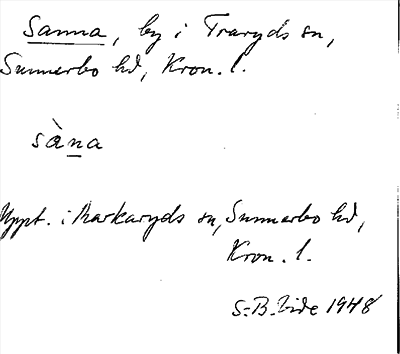 Sanna, by i Traryds sn,
Sunnerbo hd, Kron. l.
sàna
Uppt. i Markaryds sn, Sunnerbo hd,
Kron. l.
S.-B. Vide 1948